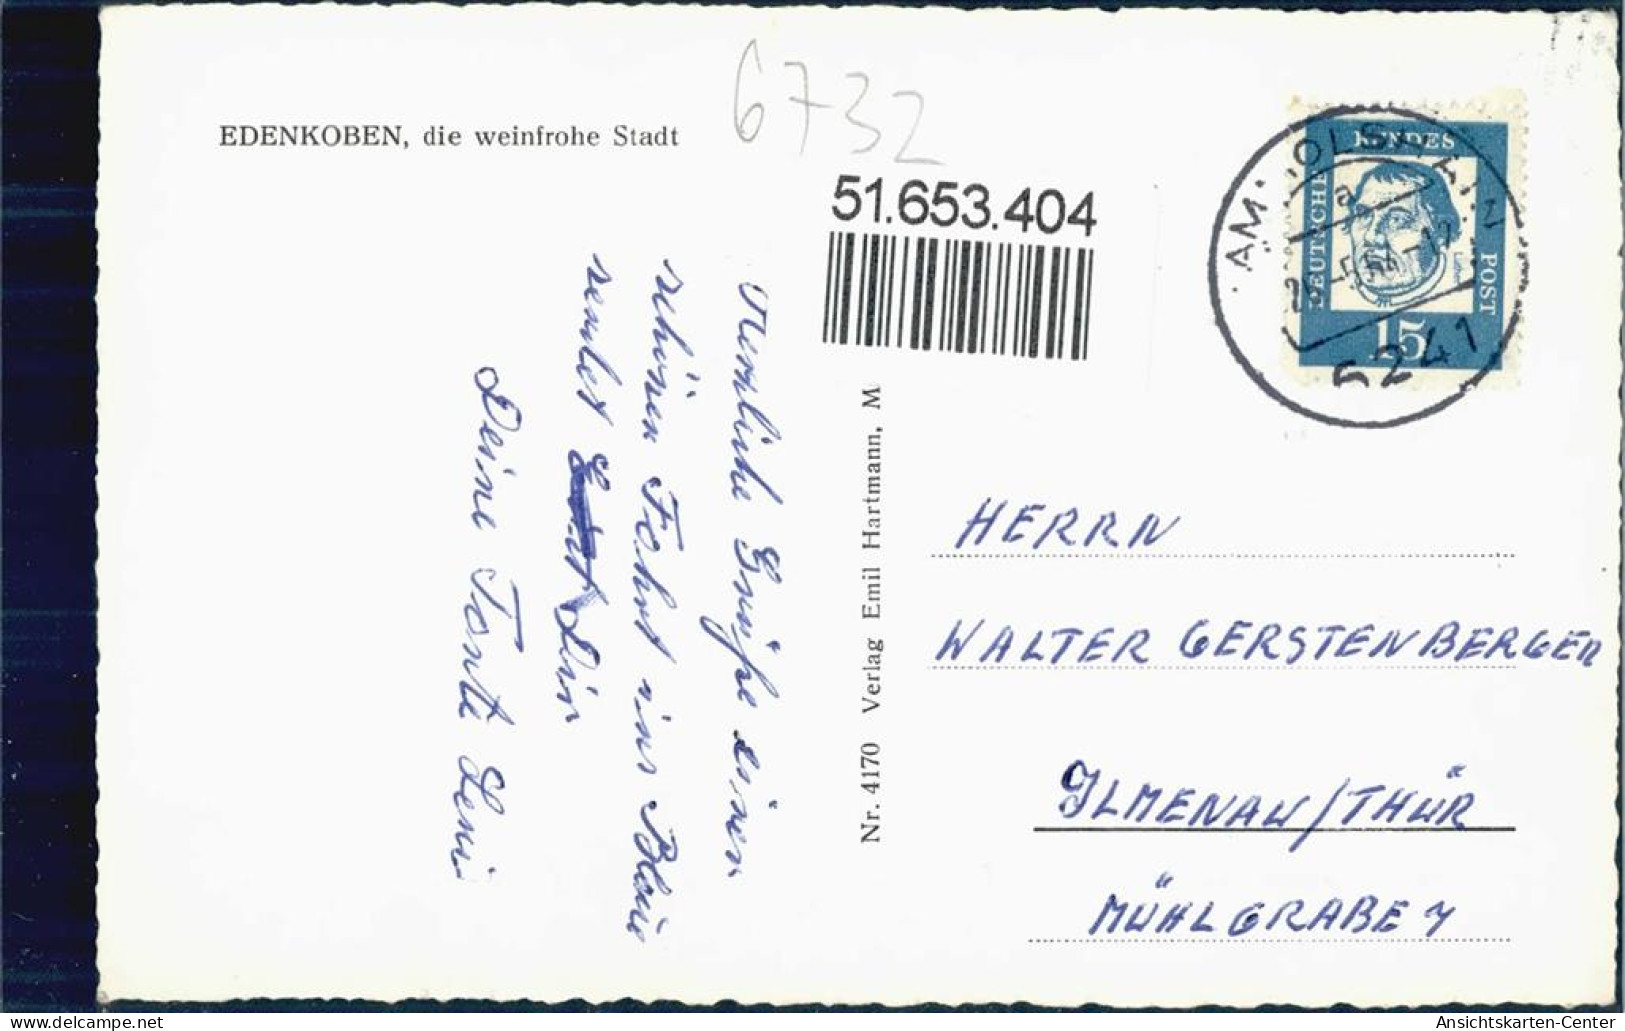 EDENKOBEN, die weinfrohe Stadt
6732
51.653.404
DEUTSCHE BUNDESPOST
15
6241
Herzliche Grüße einen
schönen Fahrt ins Blaue
sendet Dir
Deine Tante Leni
Nr. 4170 Verlag Emil Hartmann, M
HERRN
WALTER GERSTENBERGER
ILMENAU/THÜR
MÜHLGRABE 7
Ansichtskarten-Center